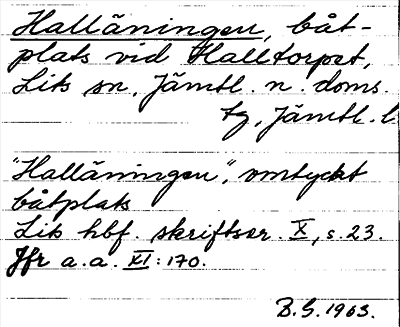 Halläningen, båt-
plats vid Halltorpet,
Lits sn, Jämtl. n. doms.
tg, Jämtl. l
"Halläningen", omtyckt
båtplats
Lits hbf. skriftser X, s. 23.
Jfr a.a. XI: 170.
B.G. 1963.